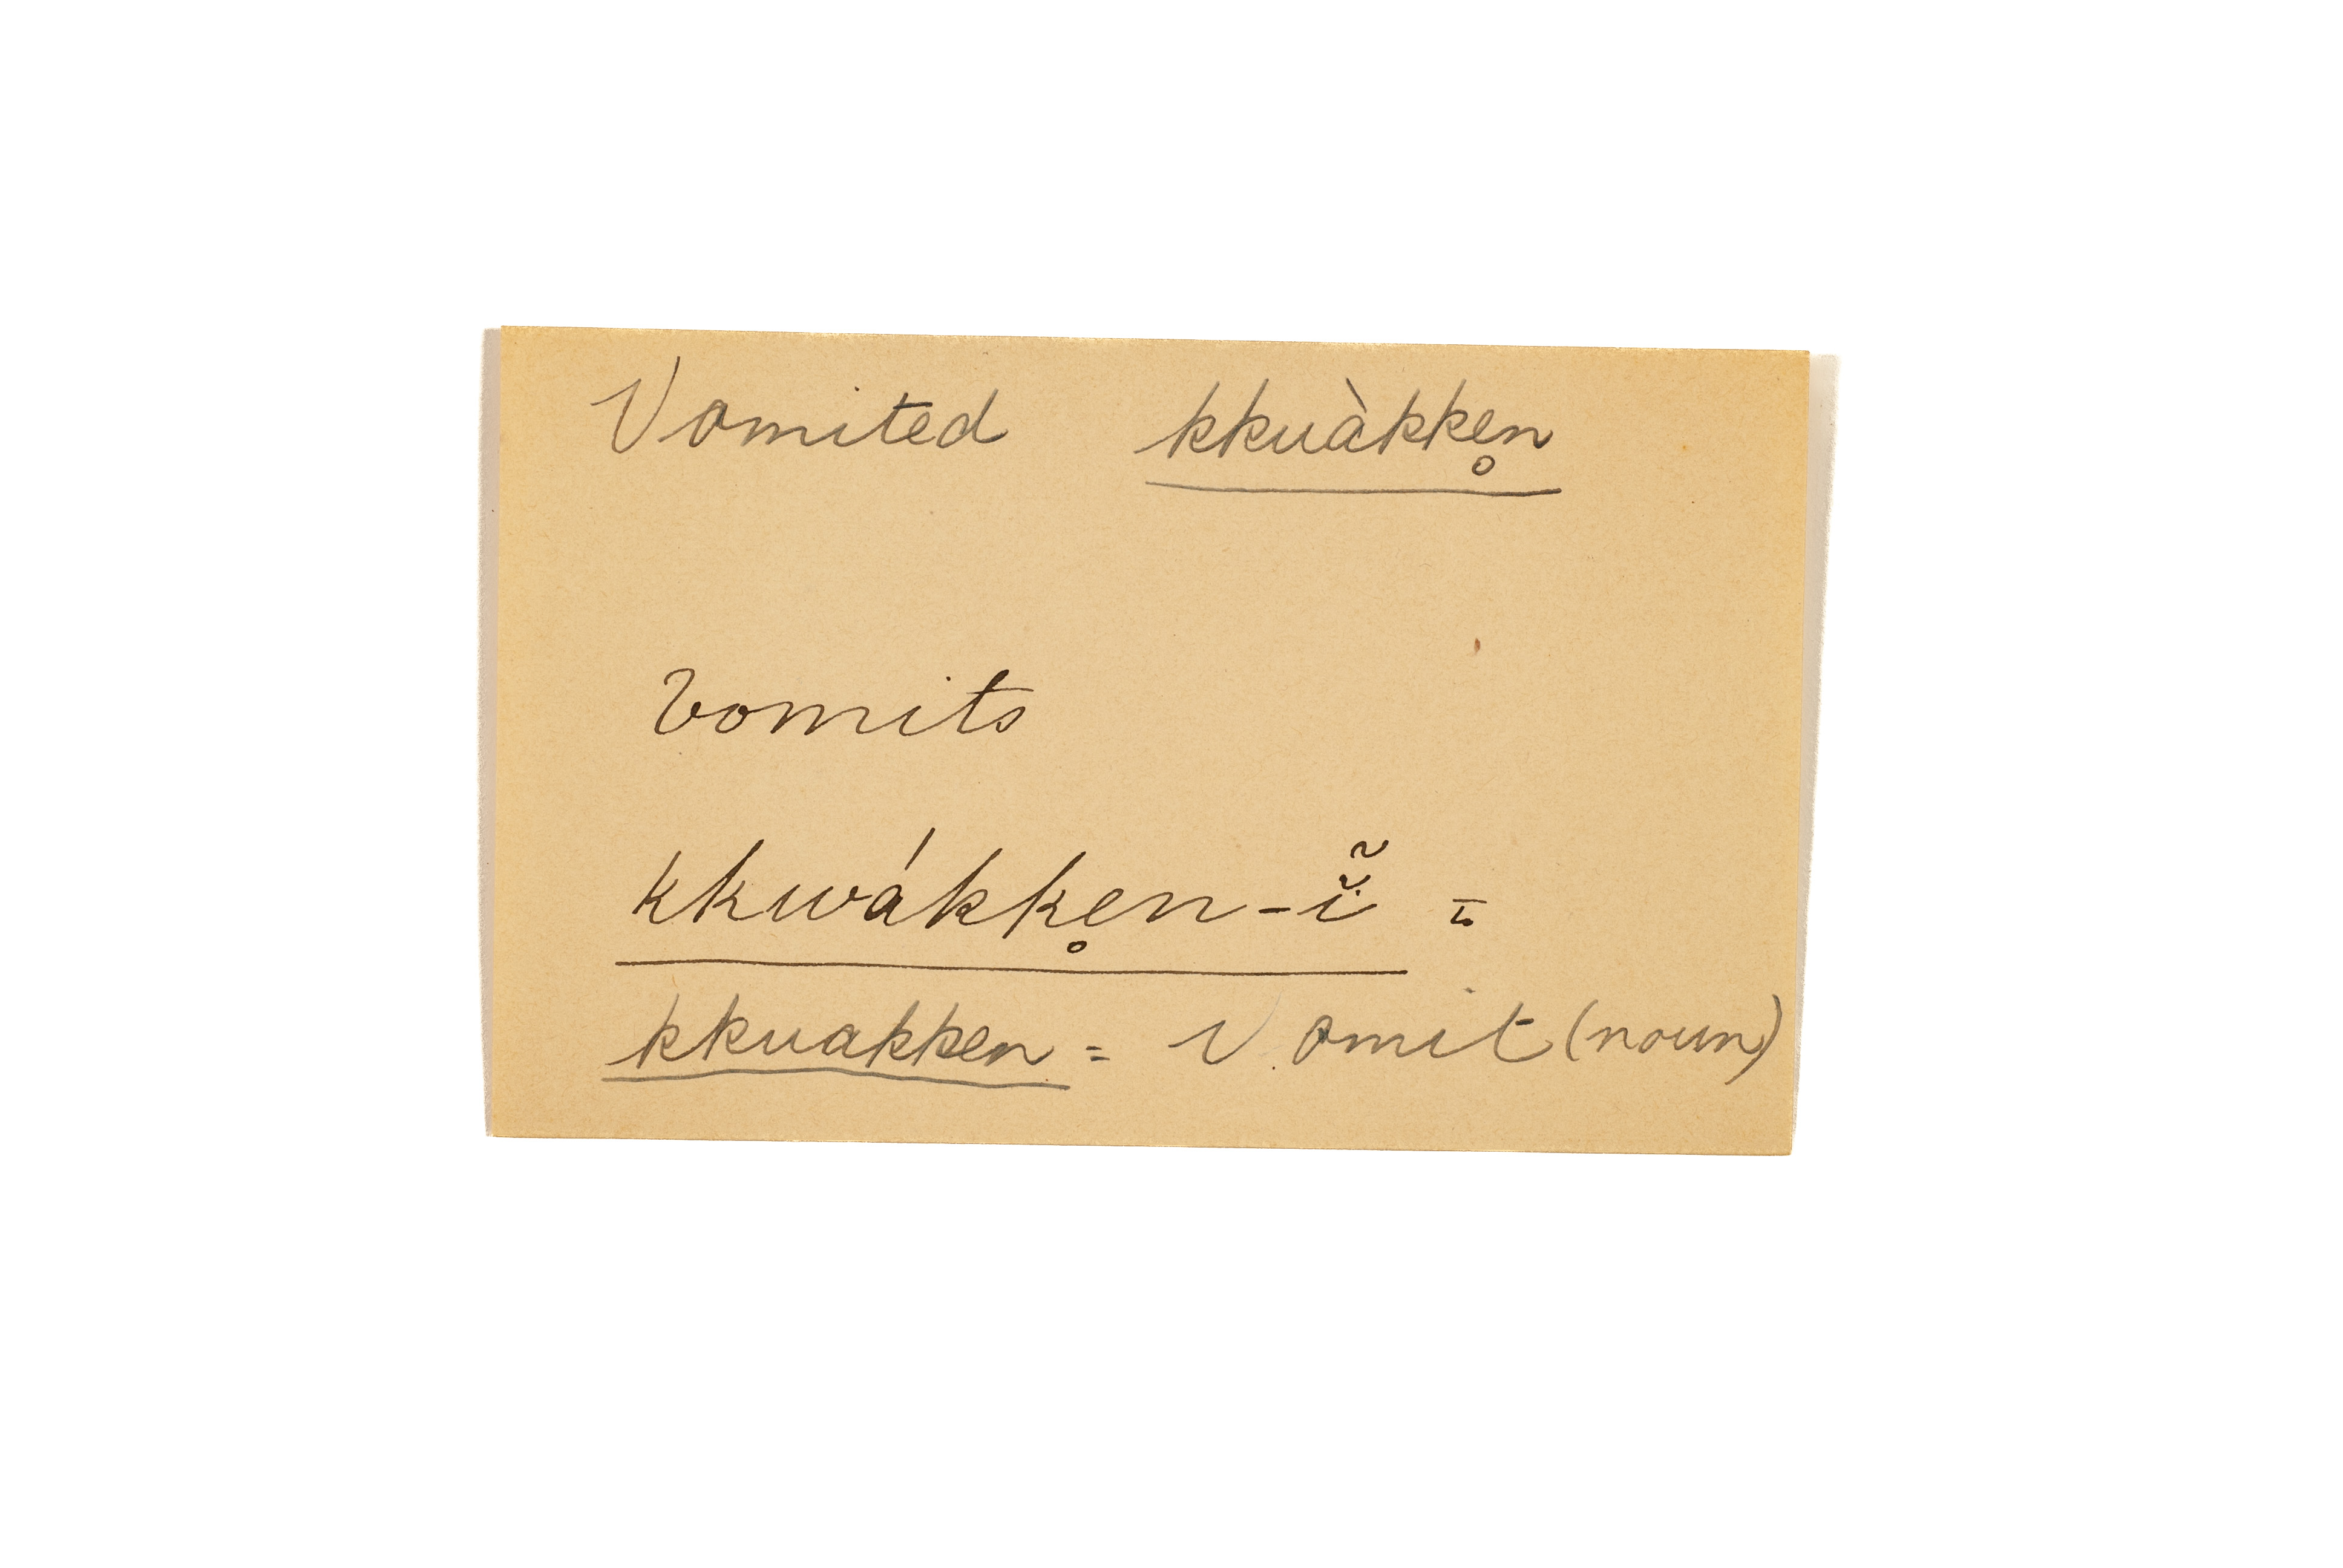 Vomited kkuàkke̥n
Vomits
kkwákke̥n-ĭ̃ =
kkuakken = Vomit (noun)